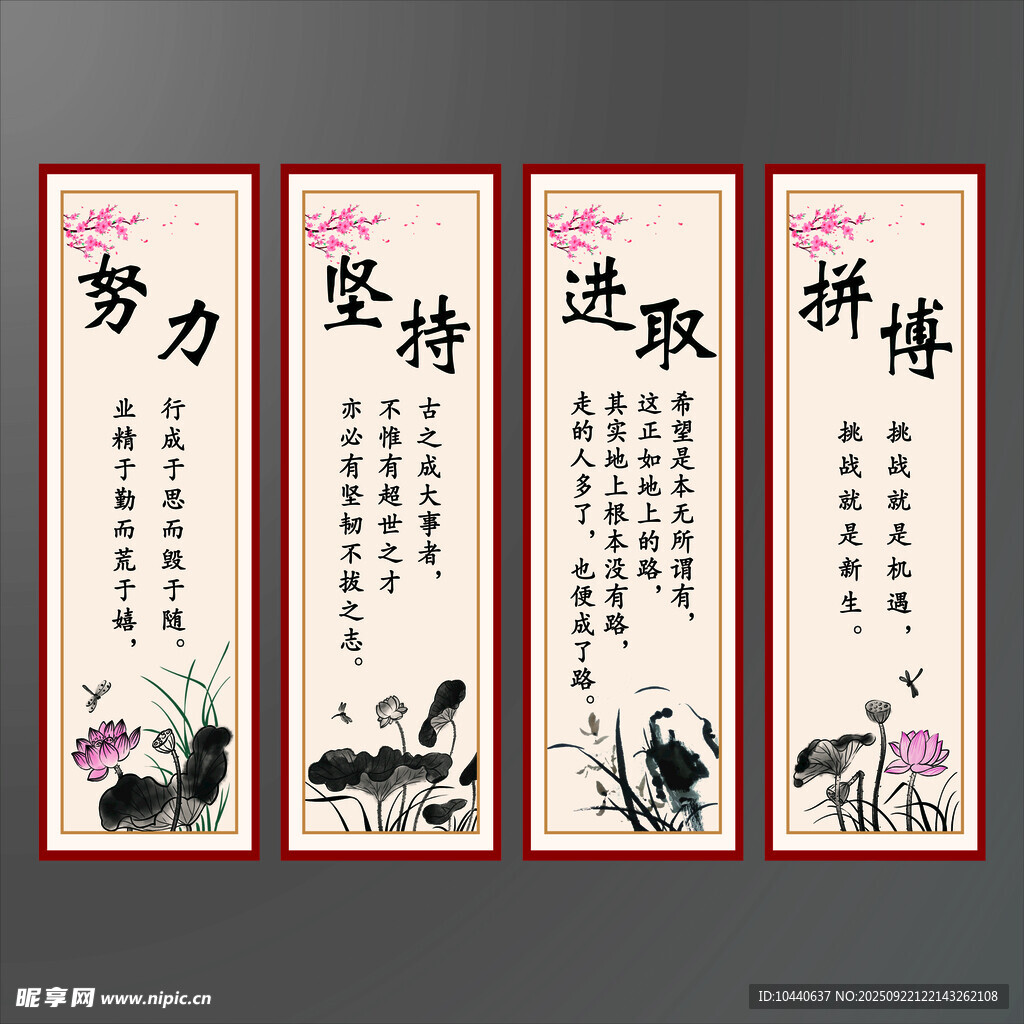 努力
业精于勤而荒于嬉，
行成于思而毁于随。
坚持
古之成大事者，
不惟有超世之才
亦必有坚韧不拔之志。
进取
希望是本无所谓有，
这正如地上的路，
其实地上根本没有路，
走的人多了，也便成了路。
拼博
挑战就是机遇，
挑战就是新生。
昵享网 www.nipic.cn
ID:10440637 NO:20250922122143262108